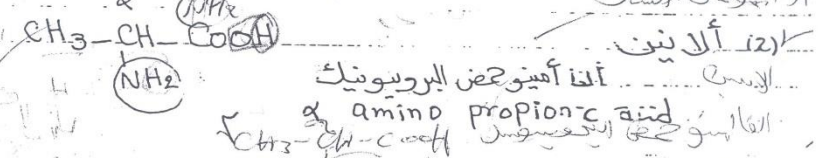 NH2
CH3-CH-COOH ألانين (2
NH2 ألفا أمينو حمض البروبيونيك
α amino propionic acid
CH3-CH-COOH